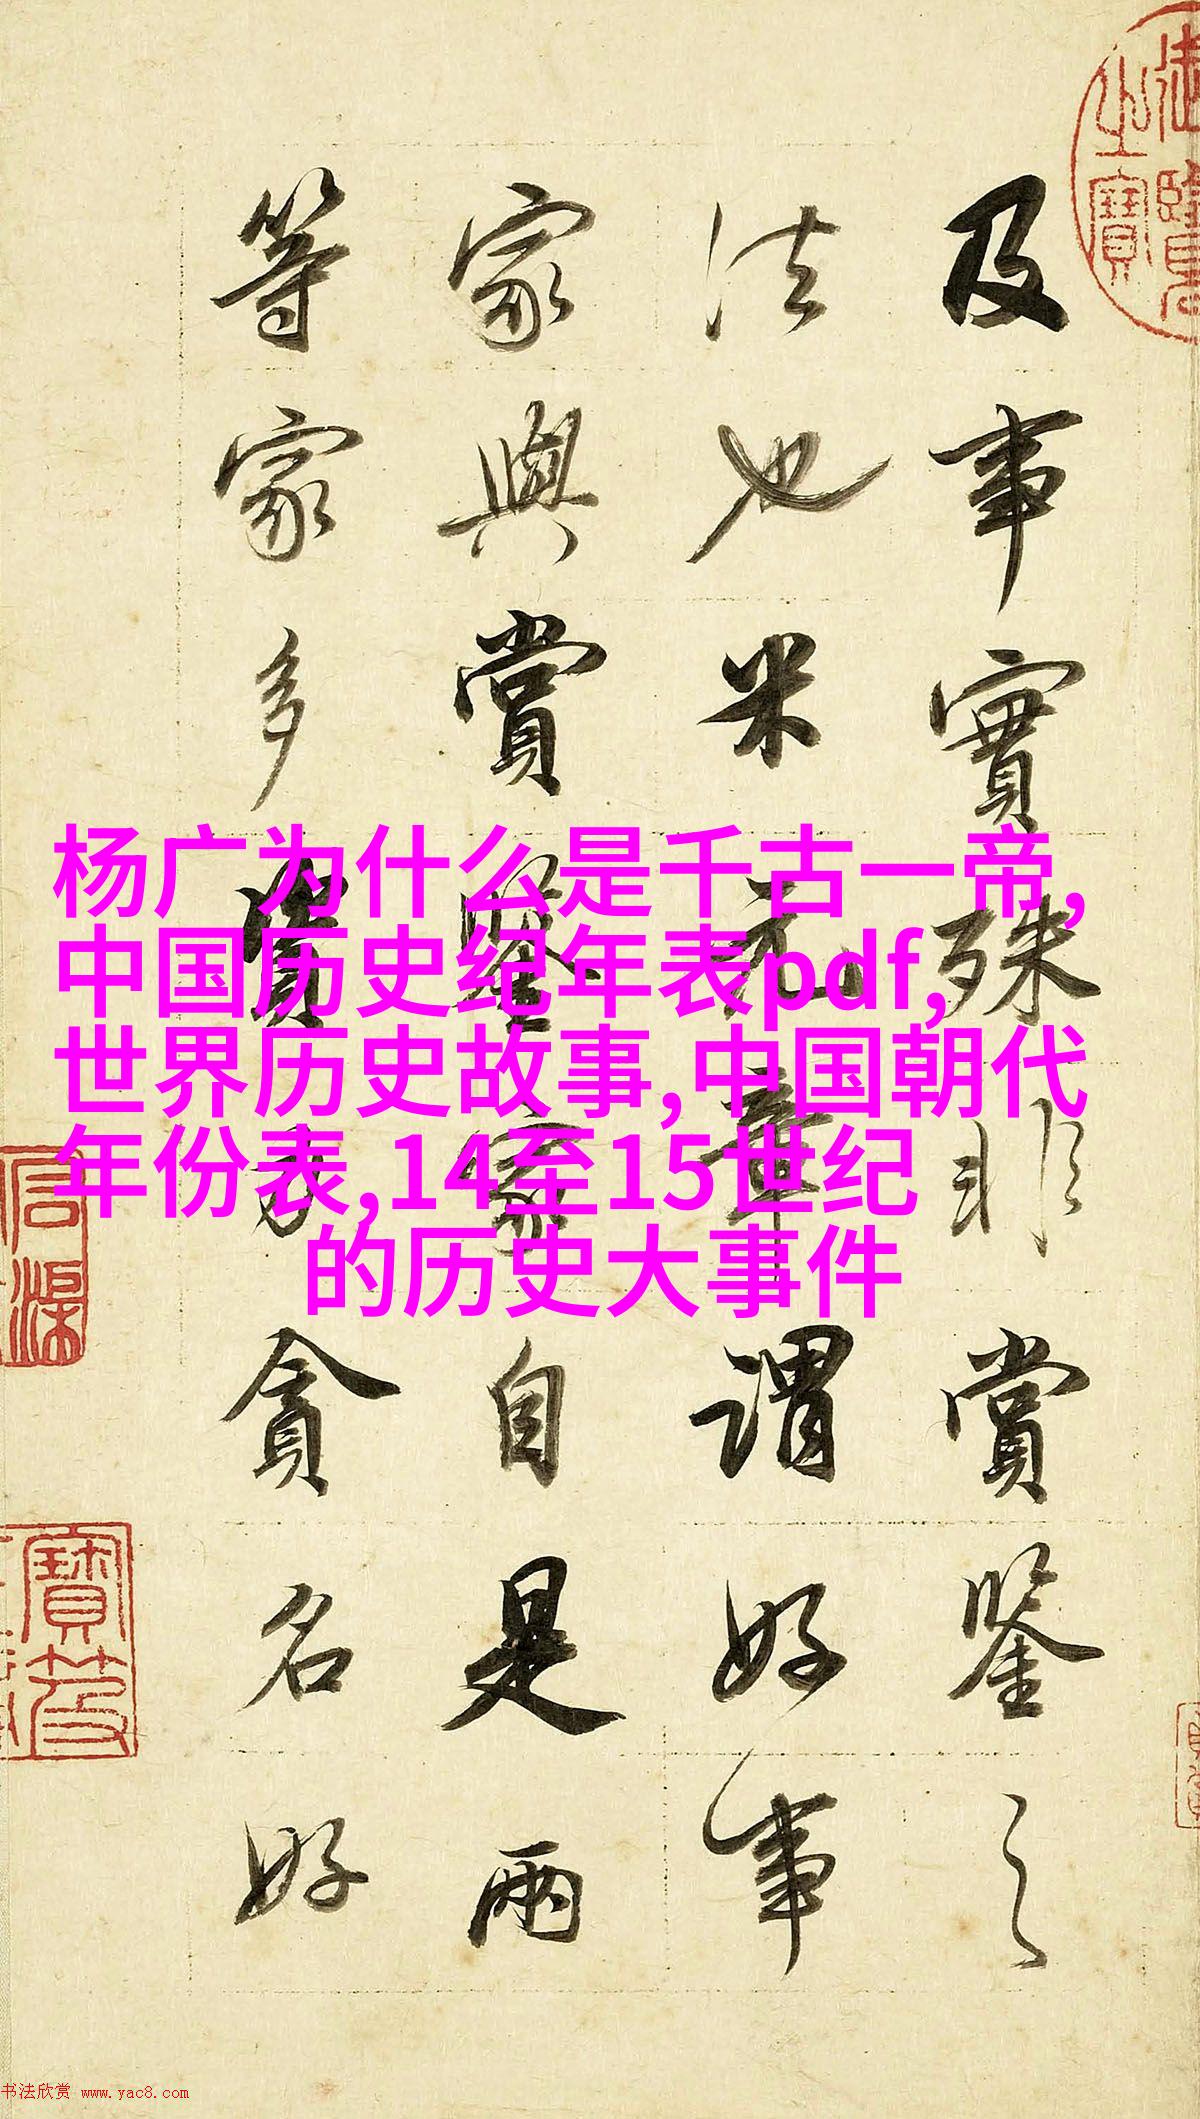 杨广为什么是千古一帝,
中国历史纪年表pdf,
世界历史故事,中国朝代
年份表,14至15世纪
的历史大事件
及事實殊非賞鑒之
法也米元章謂好事
家與賞鑒家自是兩
等家多資力貪名好
书法欣赏 www.yac8.com